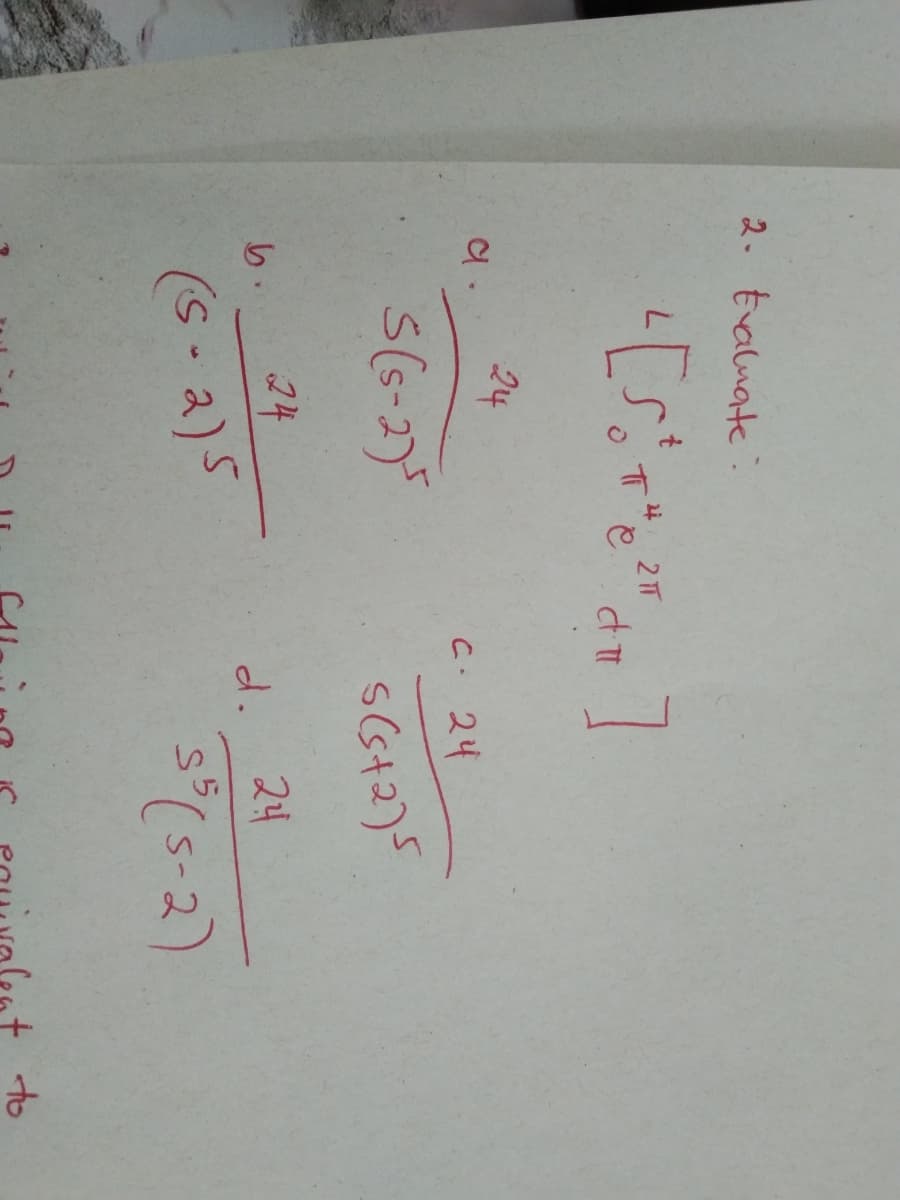 2. Evaluate:
L[∫₀ᵗ π⁴ e^{2π} dπ]
a. 24/S(s-2)⁵
c. 24/s(s+2)⁵
b. 24/(s-2)⁵
d. 24/s⁵(s-2)
following is equivalent to